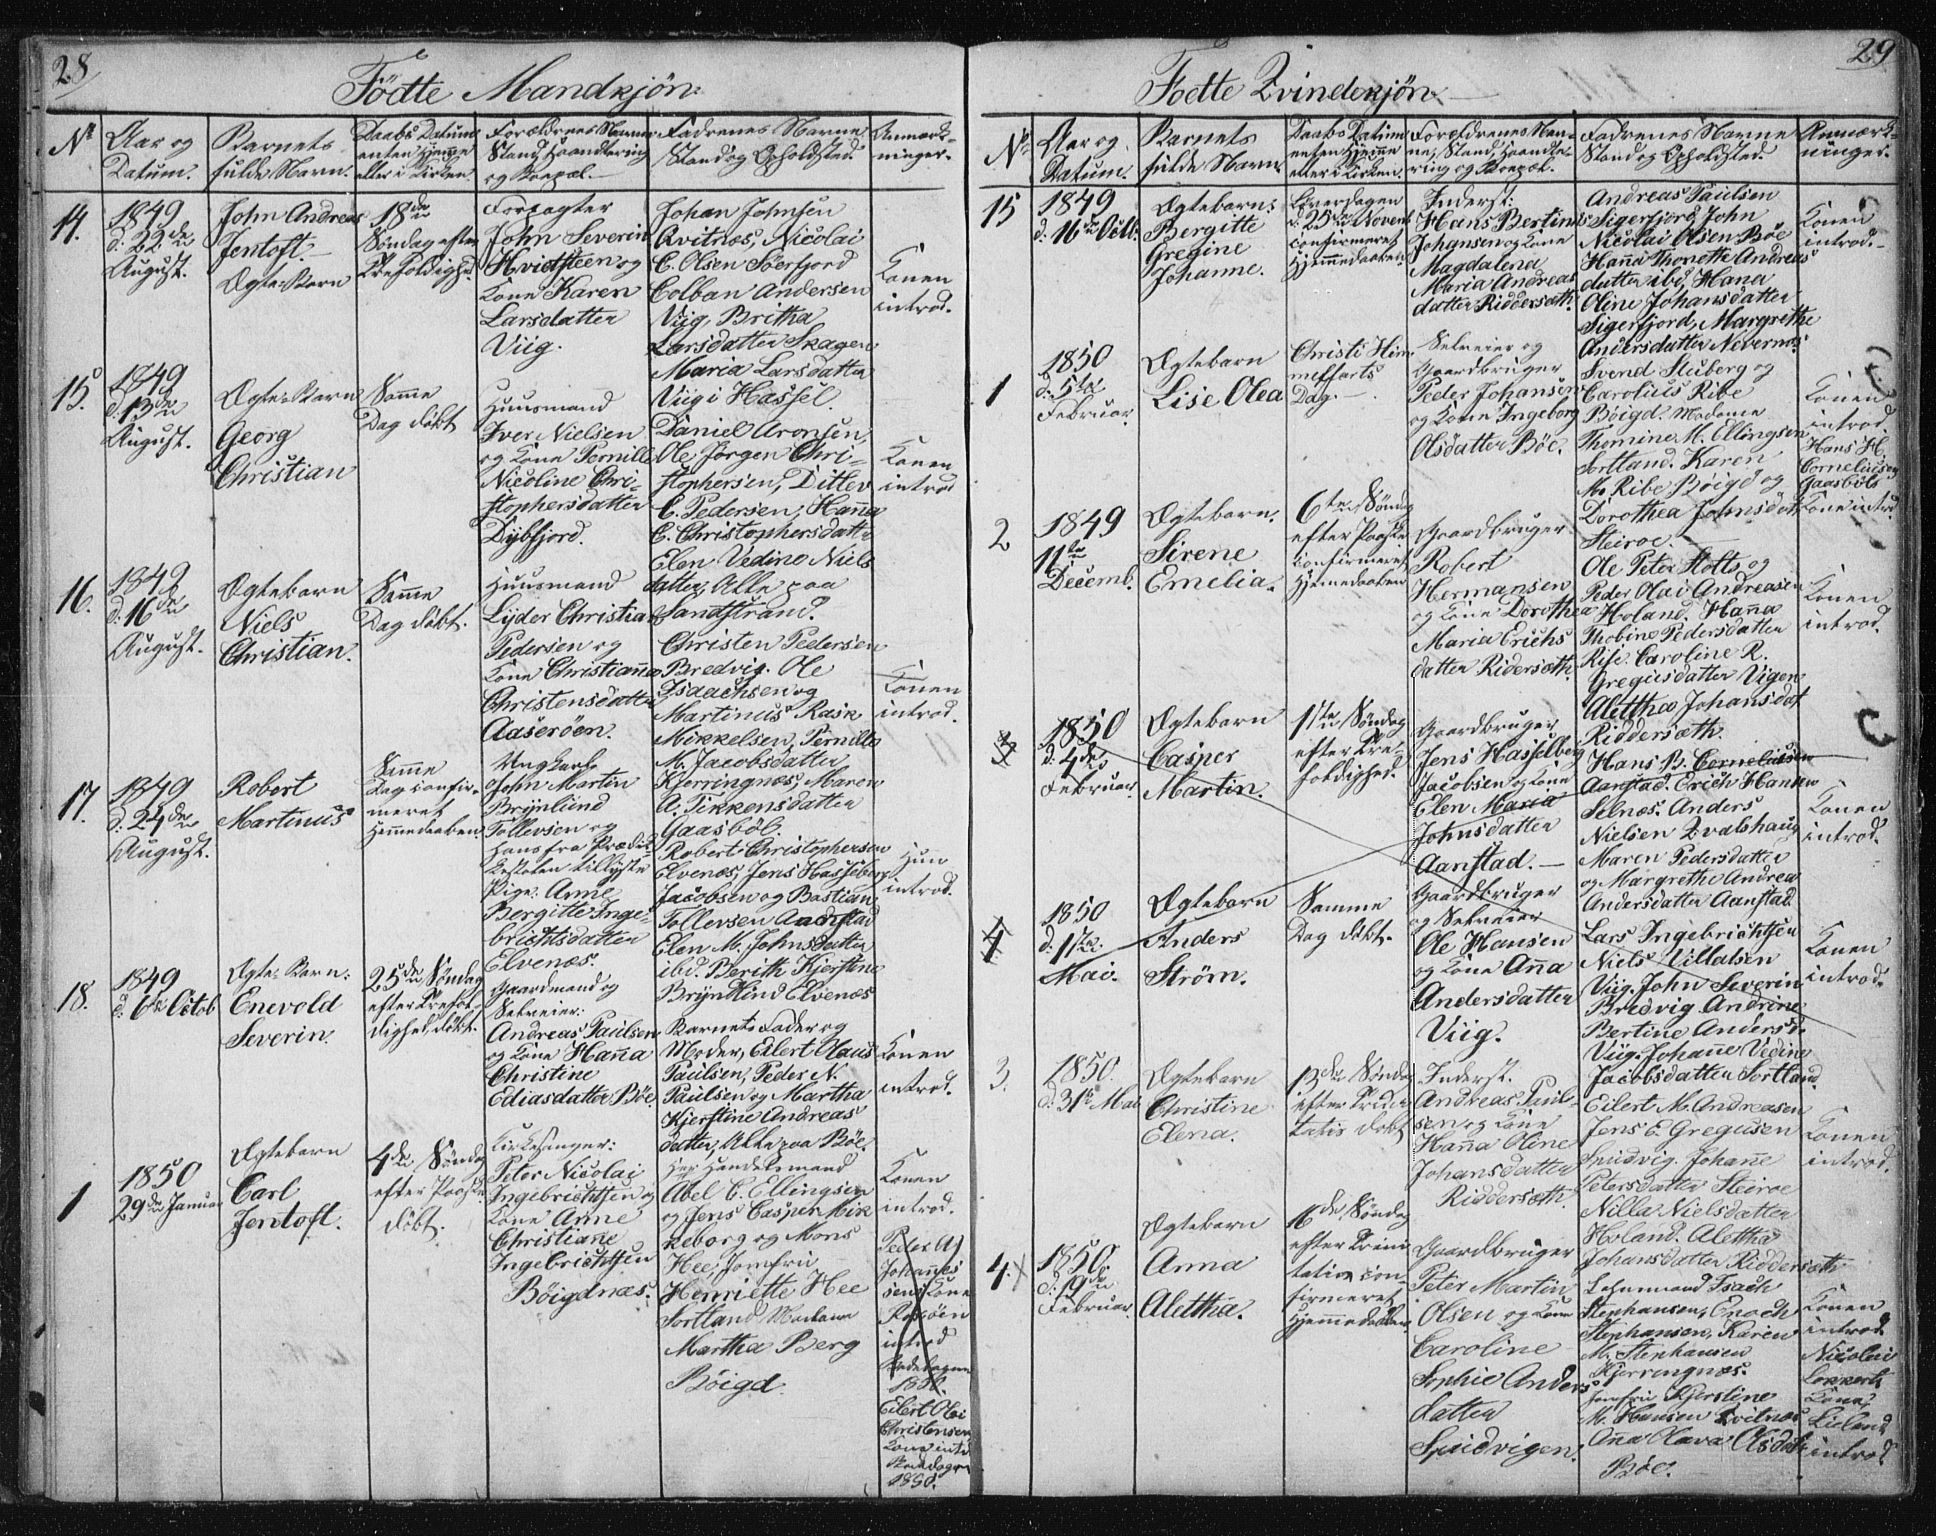 28
Födte Mandkjön
No
Aar og
Datum.
Barnets
fulde Navn.
Daabs Datum
enten hjemme
eller i Kirken.
Forældrenes Navne
Stand, Haandtering
og Bopæl.
Fadrenes Navne
Stand og Opholdsted.
Anmærk-
ninger.
14.
1849
d: 22de
August.
John Andreas
Jentoft.
Ægte-Barn
18de
Søndag efter
Trefoldighd.
Forpagter
John Severin
Hvidsteen og
Kone Karen
Larsdatter
Viig.
Johan Johnsen
Qvitnæs, Nicolai
C. Olsen Söerfjord
Colban Andersen
Viig, Britha
Larsdatter Skagen
Maria Larsdatter
Viig i Hassel.
Konen
introd.
15.
1849
d: 13de
August.
Ægte-Barn
Georg
Christian
Samme
Dag döbt
Huusmand
Iver Nielsen
og Kone Pernille
Nicoline Chri-
stophersdatter
Dybfjord.
Daniel Aronsen,
Ole Jörgen Chri-
stophersen, Ditlev
C. Pedersen, Hanna
C. Christophersdatter
Elen Vedine Niels
datter, Alle paa
Sandstrand.
Konen
introd
16.
1849
d: 16de
August.
Ægtebarn
Niels
Christian.
Samme
Dag döbt.
Huusmand
Lyder Christian
Pedersen og
Kone Christianna
Christensdatter
Aaseröen.
Christen Pedersen
Bredvig. Ole
Isaachsen og
Martinus Rask
Mikkelsen, Pernille
M. Jacobsdatter
Kjerringnæs, Maren
A. Pikkensdatter
Gaasböl.
Konen
introd.
17.
1849
d: 24de
August.
Robert
Martinus
Samme
Dag confir-
meret
Hjemmedaaben
Ungkarl
John Martin
Brynlund
Tollevsen og
hans fra Prædike-
stolen tillyste
Pige: Anne
Bergitte Inge-
brichtsdatter
Elvenæs.
Robert Christophersen
Elvenæs, Jens Hasselberg
Jacobsen og Bastian
Tollevsen Aanstad
Elen M. Johnsdatter
ibd. Berith Kjerstine
Bryndlund Elvenæs
Hun
introd.
18.
1849
d: 6te Octob
Ægte-Barn:
Enevold
Severin.
25de Søndag
efter Trefol-
dighed döbt.
Gaardmand og
Selveier:
Andreas Paulsen
og Kone Hanna
Christine
Ediasdatter Böe.
Barnets Fader og
Moder, Eilert Olaus
Paulsen, Peder N.
Paulsen og Martha
Kjerstine Andreas
datter, Alle paa Böe.
Konen
introd.
1
1850
29de Januar
Ægtebarn
Carl
Jentoft.
4de Søndag
efter Paaske
döbt.
Kirkesanger:
Peter Nicolai
Ingebrichtsen og
Kone Anne
Christianne
Ingebrichtsen
Böigdnæs.
Hr: Handelsmand
Abel C. Ellingsen
og Jens Casper Mik
keborg og Mons
Hee, Jomfru
Henriette Hee
Sortland Madame
Martha Berg
Böigd.
Konen
introd.
Peder Aj
Johannes
sens Kone
introd
1850.
Eilert Olai
Christensen
Kone introd
1850.
29
Fødte Qvindekjön
No
Aar og
Datum.
Barnets
fulde Navn.
Daabs Datum
enten hjemme
eller i Kirken.
Forældrenes Nav-
ne, Stand, Haandte-
ring og Bopæl.
Fadrenes Navne
Stand og Opholdsted.
Anmærk-
ninger.
15
1849
d: 16de Octb.
Ægtebarn:
Bergitte
Gregine
Johanne.
Løverdagen
d: 25de Novemb
confirmeret
Hjemmedaaben.
Inderst:
Hans Bertinus
Johansen og Kone
Magdalena
Maria Andreas
datter Riddersæth.
Andreas Paulsen
Sigerfjord, John
Nicolai Olsen Böe
Hanna Thonette Andreas
datter ibd, Hana
Oline Johansdatter
Sigerfjord, Margrethe
Andersdatter Nevernæs.
Konen
introd.
1
1850
d: 5te
Februar.
Ægtebarn
Lise Olea
Christi Him
melfarts
Dag.
Selveier og
Gaardbruger
Peder Johansen
og Kone Ingeborg
Olsdatter Böe.
Svend Stuberg og
Carolius Ribe
Böigd. Madame
Thomine M. Ellingsen
Sortland. Karen
Mo Ribe Böigd og
Dorothea Johnsdat
Steiroe.
Konen
introd.
Hans H.
Corneliusen
Gaasböls
Kone introd.
2
1849
11te
Decemb.
Ægtebarn.
Sirene
Emelia.
6te Søndag
efter Paaske
confirmeret
Hjemedaaben
Gaardbruger
Robert
Hermansen
og Kone Dorothea
Maria Erichs
datter Ridersæth.
Ole Peter Holts og
Peder Olai Andreasen
Holand. Hanna
Thobine Pedersdatter
Rise. Caroline R.
Gregusdatter Vigen
Alettha Johansdat
Riddersæth.
Konen
introd.
3
1850
d: 4de
Februar.
Ægtebarn
Casper
Martin.
1ste Søndag
efter Tre-
foldighed.
Gaardbruger
Jens Hasselberg
Jacobsen og Kone
Elen Maria
Johnsdatter
Aanstad.
Hans B. Corneliusen
Aanstad. Erich Hansen
Selnæs. Anders
Nielsen Qvalshaug
Maren Pedersdatter
og Margrethe Andrea
Andersdatter Aanstad
Konen
introd.
4
1850
d: 1ste
Mai.
Ægtebarn
Anders
Ström.
Samme
Dag döbt.
Gaardbruger
og Selveier
Ole Hansen
og Kone Anna
Andersdatter
Viig.
Lars Ingebrichtsen
Niels Villatsen
Viig. John Severin
Bredvig Andrine
Bertine Andersd.
Viig. Johanne Vedine
Jacobsdatter Sortland.
Konen
introd.
3.
1850.
d: 31te Mai
Ægtebarn
Christine
Elena.
13de Søndag
efter Trini-
tatis döbt
Inderst.
Andreas Paul-
sen og Kone
Hanna Oline
Johansdatter
Riddersæth.
Eilert M. Andreasen
Jens E. Gregusen
Spudvig. Johanne
Petersdatter Steiroe
Nilla Nielsdatter
Holand. Alettha
Johansdatter Riddersæth
Konen
introd.
4.
1850.
d: 19de
Februar.
Ægtebarn
Anna
Alettha.
16de Søndag
efter Trini
tatis con-
firmeret
Hjemmedaaben.
Gaardbruger
Peter Martin
Olsen og Kone
Caroline
Sophie Anders
datter
Spudvigen.
Lehnsmand Isach
Stephansen, Enoch
Stephansen, Karen
M. Stephansen
Kjerringnæs.
Jomfru Kjerstine
M. Hansen Qvitnæs
Anna Olava Olsdat
Böe.
Konen
introd.
Nicolai
Kone,
Lieland
introd